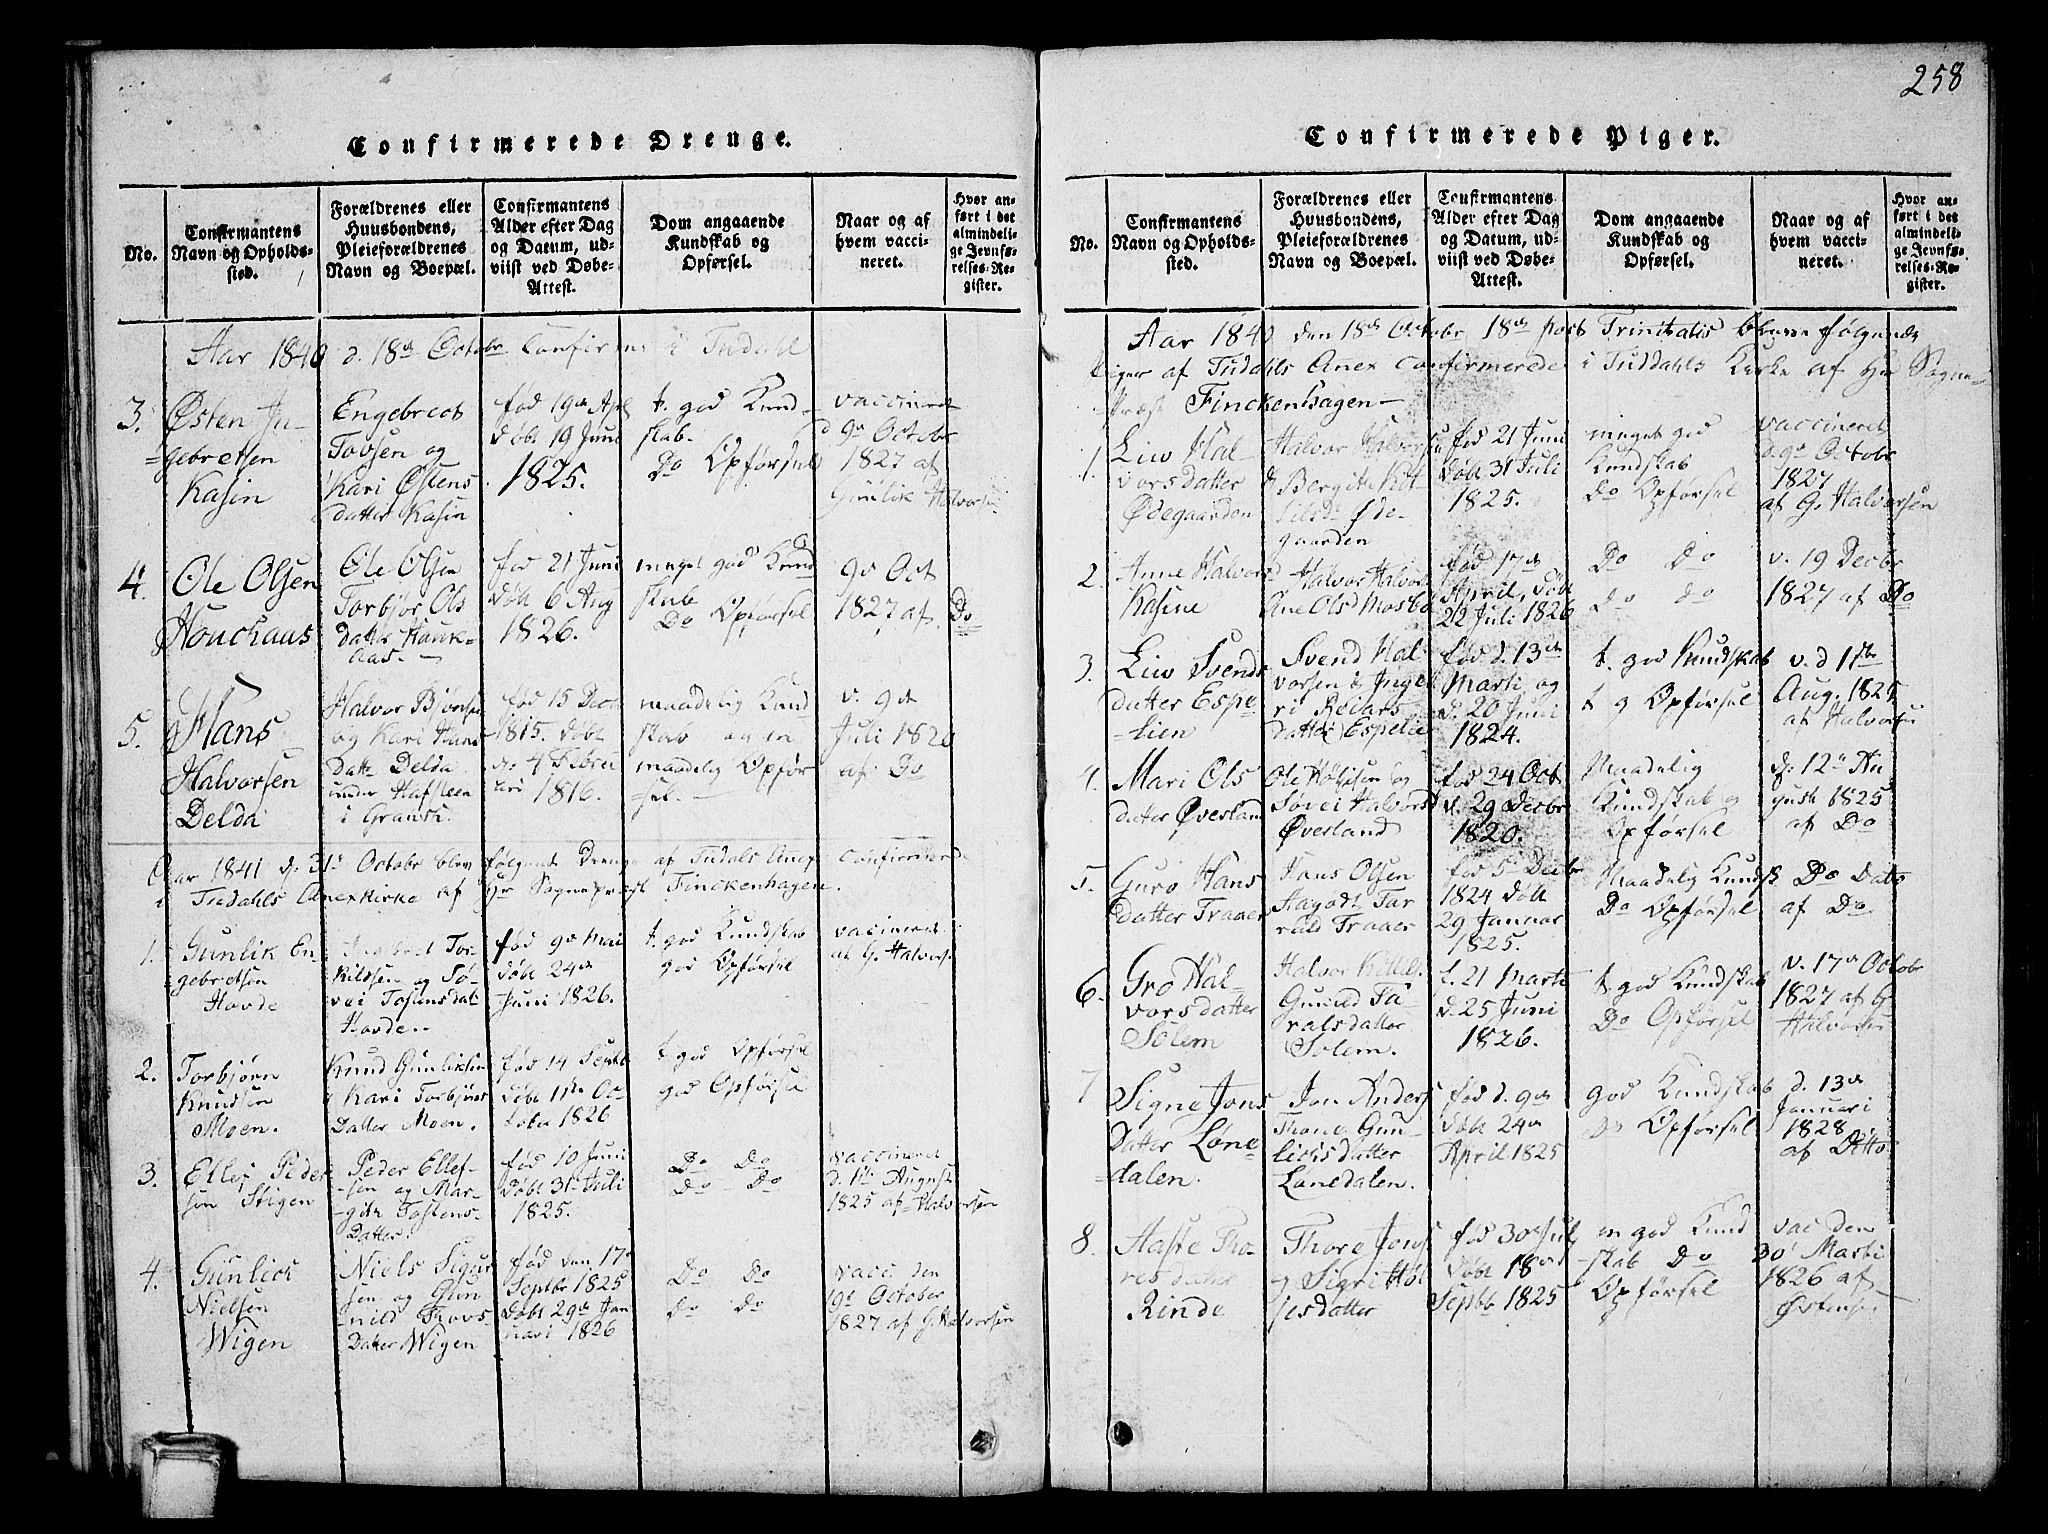 258
Confirmerede Drenge.
No.
Confirmantens
Navn og Opholds-
sted.
Forældrenes eller
Huusbondens,
Pleieforældrenes
Navn og Boepæl.
Confirmantens
Alder efter Dag
og Datum, ud-
viist ved Døbe-
Attest.
Dom angaaende
Kundskab og
Opførsel.
Naar og af
hvem vacci-
neret.
Hvor an-
ført i det
almindeli-
ge Jevnfø-
relses-Re-
gister.
Aar 1840 d. 18de Octobr Confir i Tudahl
3.
Østen In-
gebretsen
Kasin
Engebret
Tovsen og
Kari Østens
datter Kasin
fød 19de Apl
døbt 19 Juni
1825.
t. god Kund-
skab.
Do Opførsel
vaccineret
d 9de October
1827 af
Gunlik Halvorsen
4.
Ole Olsen
Houchaus
Ole Olsen
Torbjør Ols
datter Houk-
aas.
fød 21 Juni
døbt 6 Aug
1826.
meget god Kund
skab
Do Opførsel
9de Oct
1827 af Do
5.
Hans
Halvorsen
Delda
Halvor Bjørnsen
og Kari Hans
Datt Delda
under
i Gransh.
fød 15 Dec
1815. døbt
d. 4 Febru
ari 1816.
maadelig Kund
skab og en
maadelig Opfør
sel.
v. 9de
Juli 1820
af Do
Aar 1841 d. 31te Octobr blev følgende Drenge af Tudals Anex Confirmered
i Tudahls Anexkirke af Hr Sognepræst Finckenhagen.
1.
Gunlik En-
gebretsen
Hovde
Tor-
kildsen og Sø-
vei Tostensdat
Hovde.
fød 9de Mai
døbt 24de
Juni 1826.
t. god Kundskab
god Opførsel
vacineret
af G. Halvors.
2.
Torbjørn
Knudsen
Moen.
Knud Gunliksen
Kari Torbjørns
Datter Moen.
fød 14 Septb
døbt 11te Oc-
tober 1826
t. god Opførsel
god Opførsel
3.
Ellef Peder
sen Stigen
Peder Ellef-
sen og Mar-
gith Tostens-
Datter
fød 10 Juni
døbt 31te Juli
1825.
Do Do
Do Do
vaccineret
d. 1te August
1825 af Halvorsen
4.
Gunlich
Nielsen
Wigen
Niels Sigur
sen og Gun
nild Thovs-
Datter Wigen
fød den 17de
Septbr 1825
døbt 29de Jan
uari 1826
Do Do
Do Do
vacc. den
19de October
1827 af G. Halvorsen
Confirmerede Piger.
No.
Confirmantens
Navn og Opholds-
sted.
Forældrenes eller
Huusbondens,
Pleieforældrenes
Navn og Boepæl.
Confirmantens
Alder efter Dag
og Datum, ud-
viist ved Døbe-
Attest.
Dom angaaende
Kundskab og
Opførsel.
Naar og af
hvem vacci-
neret.
Hvor an-
ført i det
almindeli-
ge Jevnfø-
relses-Re-
gister.
Aar 1840 den 18de Octobr 18de post Trinitatis bleve følgende
Piger af Tudahls Anex Confirmerede i Tuddahls Kirke af Hr Sogne-
Præst Finckenhagen
1.
Liv Hal
vorsdatter
Ødegaarden
Halvor Halvorsen
& Bergite Kit
tilsd. Øde-
gaarden
fød 21 Juni
døbt 31 Juli
1825.
meget god
Kundskab
Do Opførsel
vaccineret
d. 9de Octobr
1827
af G. Halvorsen
2.
Anne Halvorsd
Kasine
Halvor Halvors
Ane Olsd Mosbø
fød 17de
April, døbt
22 Juli 1826
Do Do
Do Do
v. 19 Decbr
1827 af Do
3.
Liv Svends
datter Espe-
lien
Svend Hal
vorsen & Inge
ri Reiars
datter Espelie
fød d. 13de
Marti og
d. 20 Juni
1824.
t. god Kundskab
t g Opførsel
v. d 11te
Aug. 1825
af Halvorsen
4.
Mari Ols
datter Øverland
Ole Høljesen og
Søvei Halvorsd
Øverland
fød 24 Oct
d. 29 Decbr
1820.
Maadelig
Kundskab og
Opførsel
d. 12te Au
gust 1825
af Do
5.
Guro Hans
datter Traaer
Hans Olsen
Aagodt Tar
rald Traaer
fød 5te Decbr
1824 døbt
29 Januar
1825.
Maadelig Kundsk
Do Opførsel
Do Dato
af Do
6.
Gro Hal-
vorsdatter
Solem
Halvor Kittils
Gunild Ta-
ralsdatter
Solem.
f. 21 Marti
d. 25 Juni
1826.
t. god Kundskab
Do Opførsel
v. 17de Octobr
1827 af G
Halvorsen
7
Signe Jons
Datter Løne-
dalen.
Jon Anders
Thone Gun-
lichsdatter
Lønedalen.
fød d. 9de
døbt 24de
April 1825
god Kundskab
Do Opførsel
d. 13de
Januari
1828
af Ditto
8.
Aaste Tho-
resdatter
Rinde
Thore Jons
og Sigri Høl
jesdatter
fød 30te Jul
døbt 18de
Septb 1825
m god Kund
skab Do
Opførsel
vac den
30 Marti
1826 af
Østensen